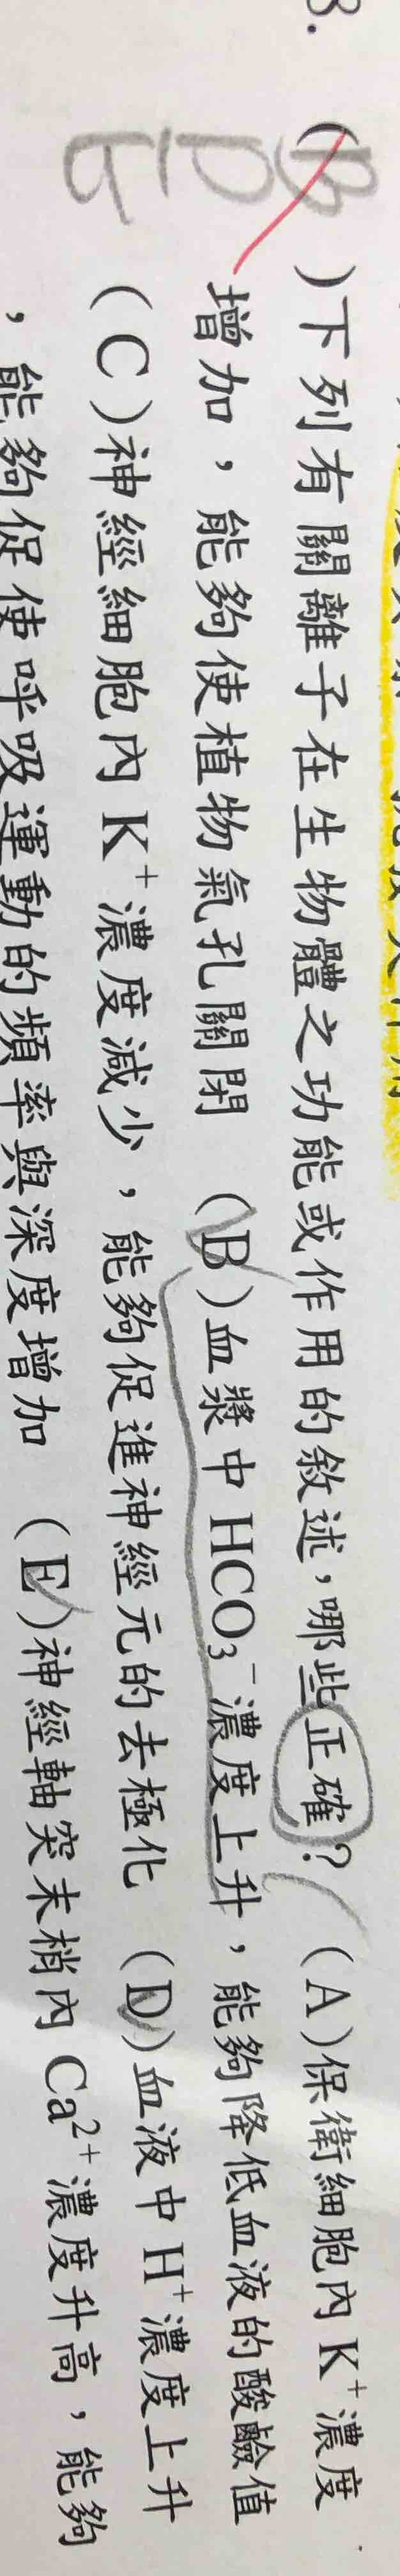 3.
(B)下列有關離子在生物體之功能或作用的敘述，哪些正確？ (A)保衛細胞內K⁺濃度
增加，能夠使植物氣孔關閉 (B)血漿中HCO₃⁻濃度上升，能夠降低血液的酸鹼值
(C)神經細胞內K⁺濃度減少，能夠促進神經元的去極化 (D)血液中H⁺濃度上升
，能夠促使呼吸運動的頻率與深度增加 (E)神經軸突末梢內Ca²⁺濃度升高，能夠
D
E